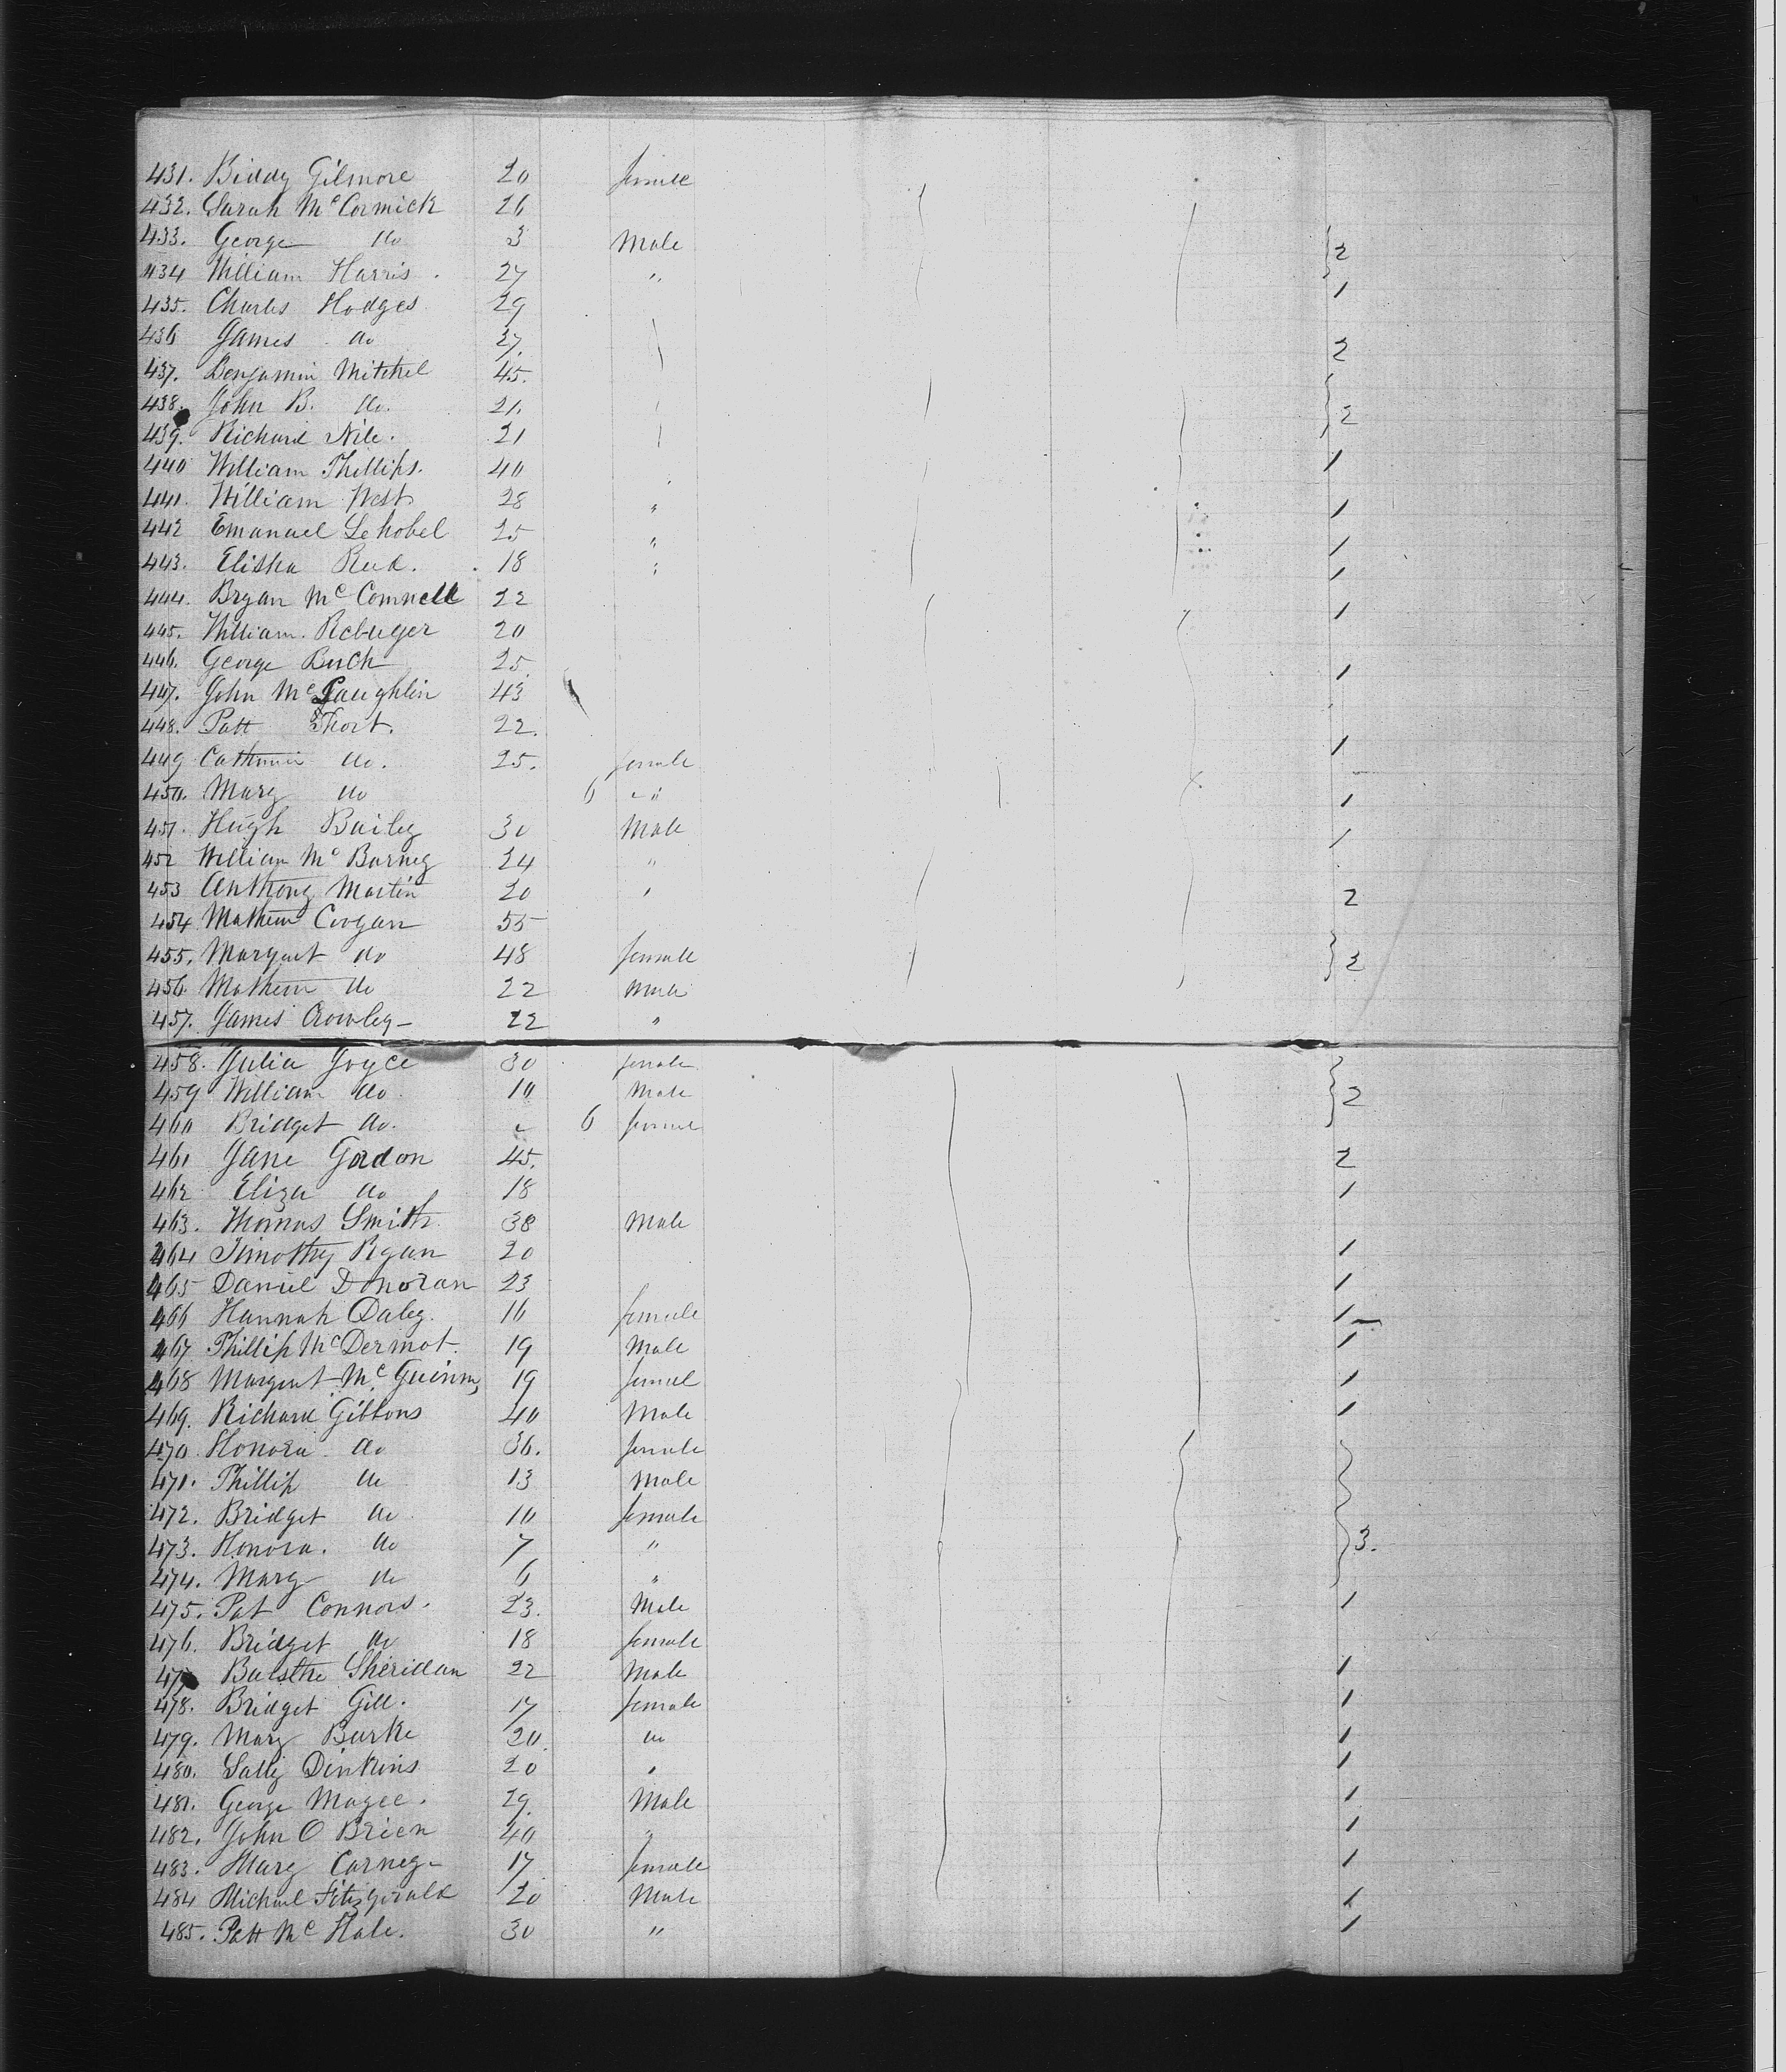 431. Biddy Gilmore 20 female
432. Sarah McCormick 26
433. George do 3 Male } 2
434 William Harris. 27 " 1
435. Charles Hodges 29
436 James do 27. 2
437. Benjamin Mitchel 45.
438. John B. do. 21. } 2
439. Richard Nile. 21
440 William Phillips. 40 1
441. William West 28 " 1
442 Emanuel Lehobel 25 " 1
443. Elisha Reed. 18 " 1
444. Bryan McConnell 22 1
445. William. 20
446. George Buck 25 1
447. John McLaughlin 43
448. Patt Short. 22. 1
449 Catherine do. 25. female
450. Mary do 6 " 1
451. Hugh Bailey 30 Male 1
452 William McBurney 24 "
453 Anthony Martin 20 " 2
454 Mathew Coogan 55
455. Margaret do 48 female } 2
456. Mathew do 22 Male
457. James Crowley 22 "
458. Julia Joyce 30 female
459 William do 10 Male } 2
460 Bridget do. 6 female
461 Jane Gordon 45. 2
462 Eliza do 18 1
463. Thomas Smith 38 Male
464 Timothy Ryan 20 1
465 Daniel Donovan 23 1
466 Hannah Daley. 16 female 1
467 Phillip McDermot. 19 Male 1
468 Margaret McGuinn 19 femal 1
469. Richard Gibbons 40 Male 1
470 Honora do 36. female
471. Phillip do 13 Male
472. Bridget do 10 female
473. Honora. do 7 " } 3.
474. Mary do 6 "
475. Pat Connors. 23. Male 1
476. Bridget do 18 female
477 Sheridan 22 Male 1
478. Bridget Gill. 17 female 1
479. Mary Burke 20 do 1
480. Sally Dinkins 20 " 1
481. George Magee. 29. Male 1
482. John O Brien 40 " 1
483. Mary Carney 17 female 1
484 Michael Fitzgerald 20 Male 1
485. Patt McHale. 30 " 1